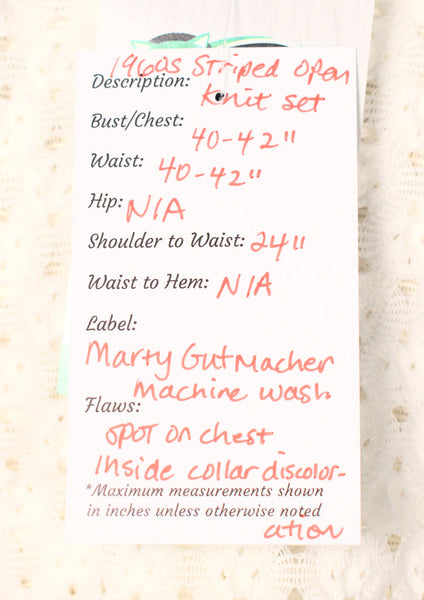 1960s Striped Open
Description:
Knit set
Bust/Chest:
40-42"
Waist: 40-42"
Hip: N/A
Shoulder to Waist: 24"
Waist to Hem: N/A
Label:
Marty Gutmacher
Machine wash
Flaws:
spot on chest
Inside collar discolor-
*Maximum measurements shown
in inches unless otherwise noted
ation